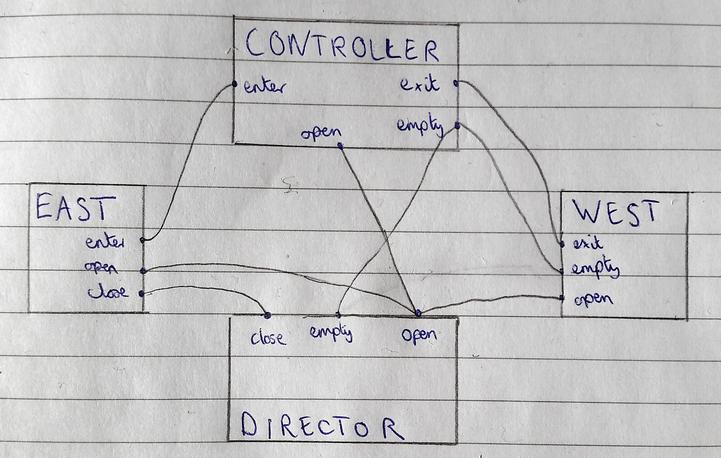 CONTROLLER
enter
exit
open
empty
EAST
enter
open
close
WEST
exit
empty
open
close
empty
open
DIRECTOR